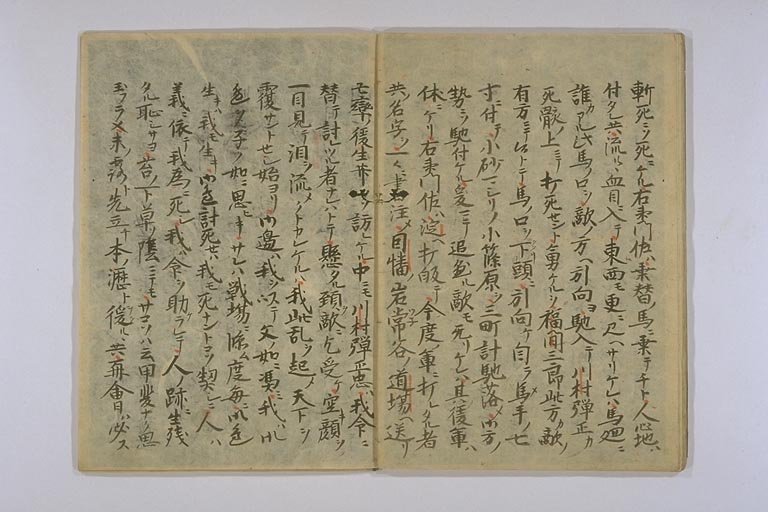 斬死ニソ死ニケル右衛門佐ハ乗替ノ馬ニ乗テチト人心地ハ
付タレ共流ルヽ血目ニ入テ東西モ更ニ見ヘサリケレハ馬廻ニ
誰カアル此馬ノ口ヲ敵ノ方ヘ引向ヨ馳入テ川村弾正カ
死骸ノ上ニテ打死セント勇ケルヲ福間三郎此方カ敵ノ
有方ニテ候トテ馬ノ口ヲ下頭ニ引向ケ自ラ馬手ノ七
寸ニ付テ小砂マシリノ小篠原ヲ三町計馳落メ御方ノ
勢ニソ馳付ケル爰ニテ追ル敵モ无リケレハ其後軍ハ
休ニケリ右衛門佐ハ淀ヘ打皈テ今度ノ軍ニ打レタル者
共ノ名字ヲ一々ニ書注メ因幡ノ岩常谷ノ道場ヘ送リ
亡卒ノ後生菩ヲ訪レケル中ニモ川村弾正忠ハ我命ニ
替テ討レツル者ナレハトテ懸タル頚ヲ敵ニ乞受ケ空顔ヲ
一目見テ泪ヲ流メノトカレケルハ我此乱ヲ起メ天下ヲ
覆サントセシ始ヨリ御邊ハ我ヲ以テ父ノ如ニ馮ミ我ハ御
邊ヲ子ノ如ニ思ヒキサレハ戦場ニ臨ム度毎ニ御邊
生キハ我モ生キ御邊討死セハ我モ死ナントコソ契シニ人ハ
義ニ依テ我為ニ死シ我ハ命ヲ助ラレテ人ノ跡ニ生残
タル恥シサヨ苔ノ下草ノ陰ニテモサコソハ云甲斐ナク思
玉フラメ末ノ露ト先立チ本ノ滴ト後ルヽ共再會ハ必ス